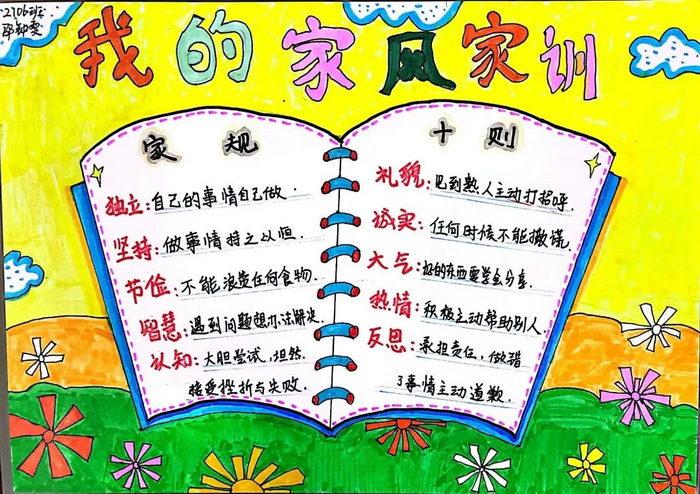 2106班
我的家风家训
家规
十则
独立:自己的事情自己做.
坚持:做事情持之以恒.
节俭:不能浪费任何食物.
智慧:遇到问题想办法解决.
认知:大胆尝试,坦然.
接受挫折与失败.
礼貌:见到熟人主动打招呼.
诚实:任何时候不能撒谎.
大气:好的东西要学会分享.
热情:积极主动帮助别人.
反思:承担责任,做错
了事情主动道歉.